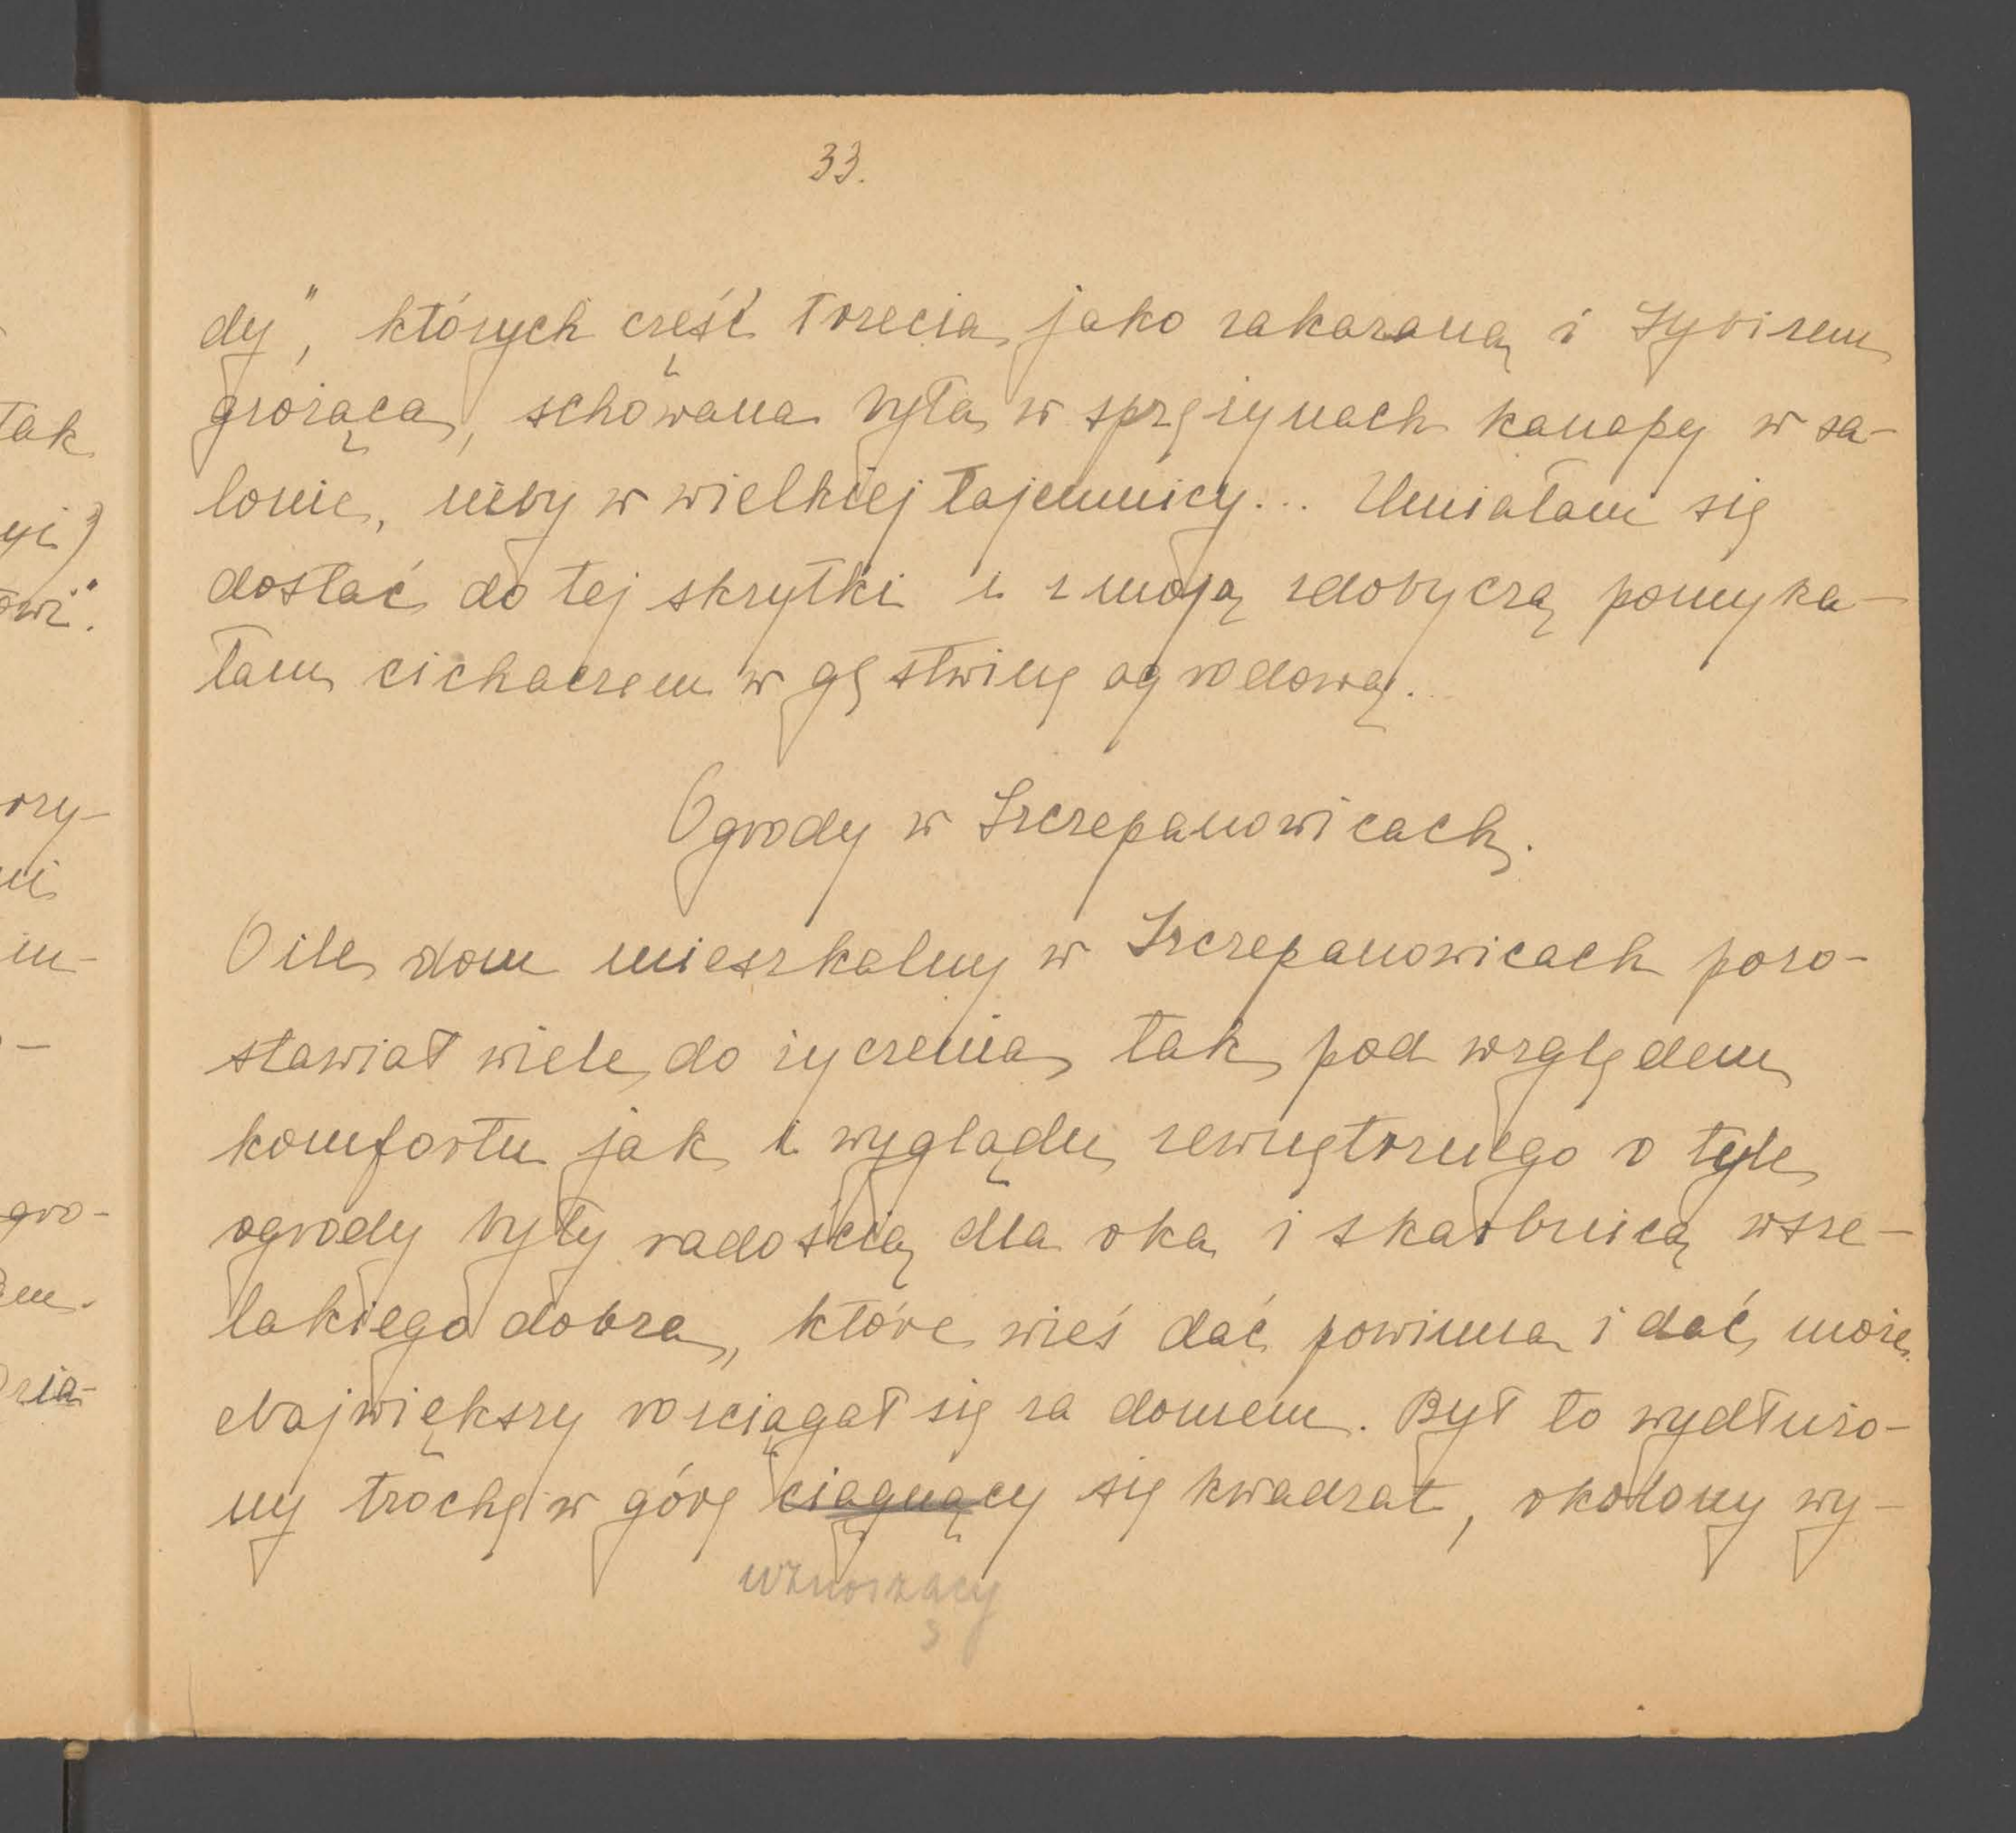 33.
dy", których część trzecia jako zakazana i Sybirem
grożąca, schowana była w sprężynach kanapy w sa-
lonie, niby w wielkiej tajemnicy... Umiałam się
dostać do tej skrytki i z moją zdobyczą pomyka-
łam cichaczem w gęstwinę ogrodową.
Ogrody w Szczepanowicach.
O ile dom mieszkalny w Szczepanowicach pozo-
stawiał wiele do życzenia tak pod względem
komfortu jak i wyglądu zewnętrznego o tyle
ogrody były radością dla oka i skarbnicą wsze-
lakiego dobra, które wieś dać powinna i dać może.
Największy rozciągał się za domem. Był to wydłużo-
ny trochę w górę ciągnący się kwadrat, okolony wy-
wznoszący
tak
yi)
owi".
rzy-
ni
in-
-
gro-
em.
zia-